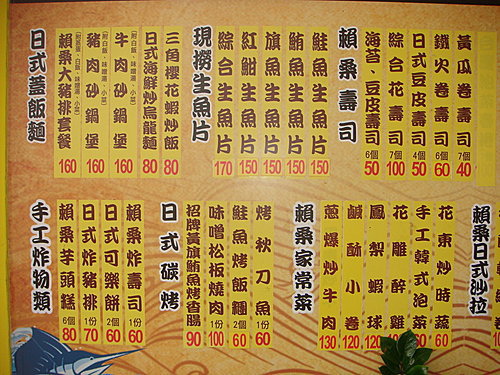 賴桑壽司
黃瓜卷壽司 7個 40
鐵火卷壽司 6個 60
日式豆皮壽司 4個 50
綜合花壽司 7個 100
海苔、豆皮壽司 6個 50
現撈生魚片
鮭魚生魚片 150
鮪魚生魚片 150
旗魚生魚片 150
紅魽生魚片 150
綜合生魚片 170
日式蓋飯麵
三角櫻花蝦炒飯 80
日式海鮮炒烏龍麵 80
牛肉砂鍋堡 160
豬肉砂鍋堡 160
賴桑大豬排套餐 160
賴桑日式沙拉
賴桑家常菜
花東炒時蔬 60
手工韓式泡菜 60
花雕醉雞
鳳梨蝦球 120
鹹酥小卷 120
蔥爆炒牛肉 130
日式碳烤
烤秋刀魚 60
鮭魚烤飯糰 2個 60
味噌松板燒肉 1份 100
招牌黃旗鮪魚烤香腸 90
手工炸物類
賴桑炸壽司 1份 60
日式可樂餅 2個 60
日式炸豬排 1份 70
賴桑芋頭糕 6個 80